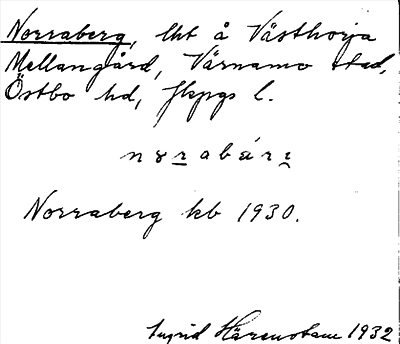 Norraberg, lht å Västhorja
Mellangård, Värnamo stad,
Östbo hd, Jkpgs l.
Norraberg kb 1930.
Ingrid Härenstam 1932